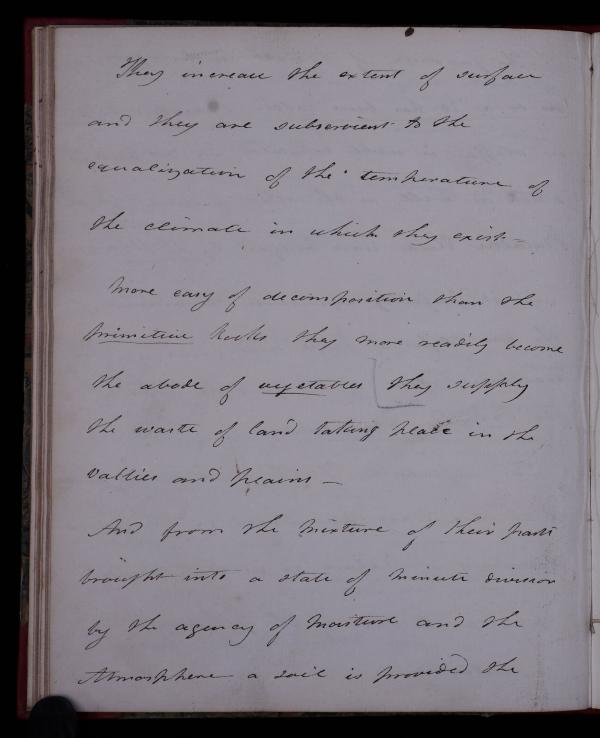 They increase the extent of surface
and they are subservient to the
equalization of the temperature of
the climate in which they exist –
More easy of decomposition than the
primitive Rocks they more readily become
the abode of vegetables they supply
the waste of land taking place in the
Vallies and plains –
And from the mixture of their parts
brought into a state of minute division
by the agency of moisture and the
Atmosphere a soil is provided the